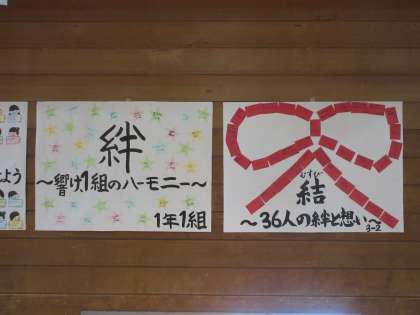 よう
絆
～響け1組のハーモニー～
1年1組
むすび
結
～36人の絆と想い～
3-2